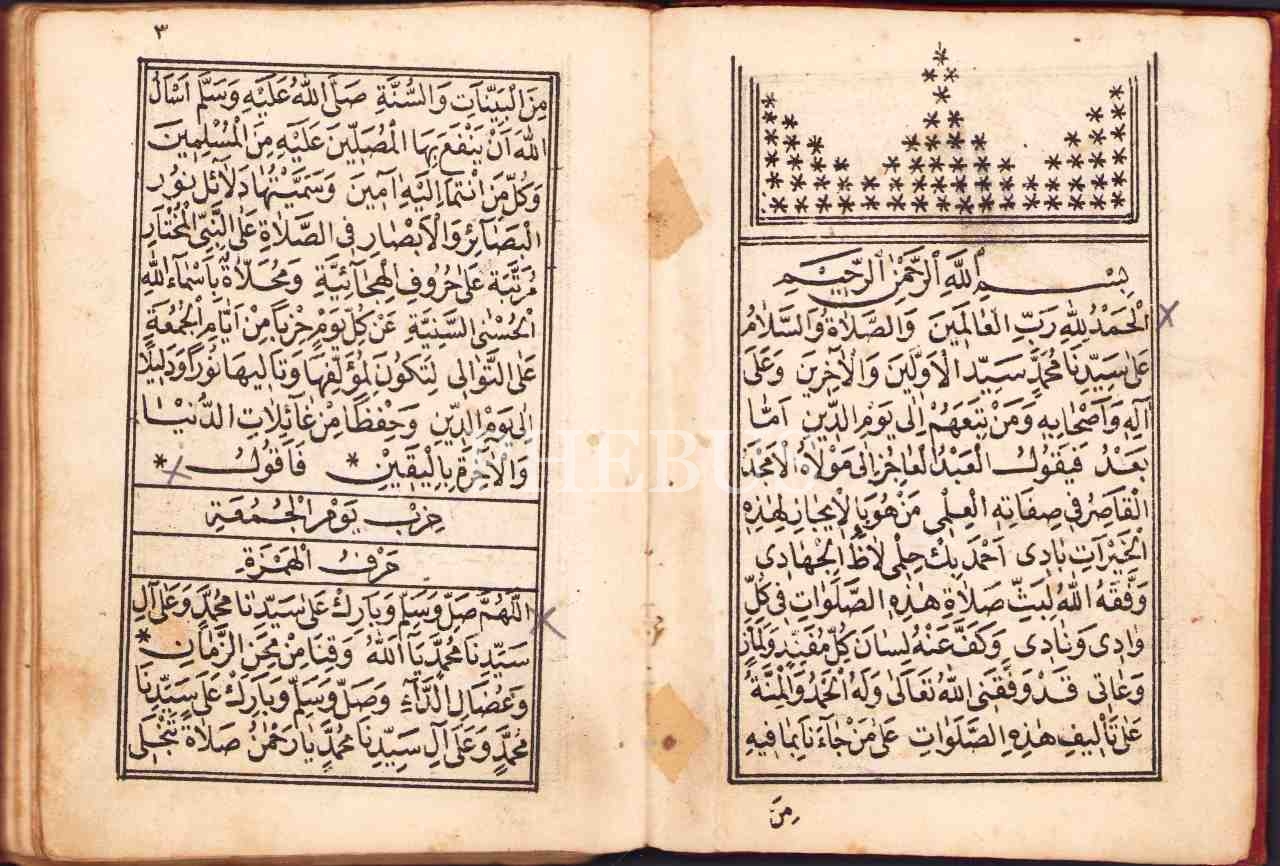 بِسْمِ اللّٰهِ الرَّحْمٰنِ الرَّحِيْمِ
اَلْحَمْدُ لِلّٰهِ رَبِّ الْعَالَمِينَ وَالصَّلَاةُ وَالسَّلَامُ
عَلٰى سَيِّدِنَا مُحَمَّدٍ سَيِّدِ الْاَوَّلِينَ وَالْآخِرِينَ وَعَلٰى
آلِهِ وَاَصْحَابِهِ وَمَنْ تَبِعَهُمْ اِلٰى يَوْمِ الدِّينِ اَمَّا
بَعْدُ فَيَقُولُ الْعَبْدُ الْعَاجِزُ اِلٰى مَوْلَاهُ الْاَمْجَدِ
الْقَاصِرُ فِى صِفَاتِهِ الْعِلْمِى مَنْ هُوَ بِالْاِيجَازِ لِهٰذِهِ
الْخَيْرَاتِ بَادِى اَحْمَدْ بِكْ حِلْمِى الْجِهَادِى
وَفَّقَهُ اللّٰهُ لِبَثِّ صَلَاةِ هٰذِهِ الصَّلَوَاتِ فِى كُلِّ
وَادِى وَنَادِى وَكَفَّ عَنْهُ لِسَانَ كُلِّ مُفَنِّدٍ
وَعَاتِى قَدْ وَفَّقَنِى اللّٰهُ تَعَالٰى وَلَهُ الْحَمْدُ وَالْمِنَّةُ
عَلٰى تَأْلِيفِ هٰذِهِ الصَّلَوَاتِ عَلٰى مَنْ جَآءَنَا بِمَا فِيهِ
مِنَ
٣
مِنَ الْبَيِّنَاتِ وَالسُّنَّةِ صَلَّى اللّٰهُ عَلَيْهِ وَسَلَّمَ اَسْاَلُ
اللّٰهَ اَنْ يَنْفَعَ بِهَا الْمُصَلِّينَ عَلَيْهِ مِنَ الْمُسْلِمِينَ
وَكُلَّ مَنِ انْتَمَا اِلَيْهِ آمِينَ وَسَمَّيْتُهَا دَلَائِلَ نُورِ
الْبَصَآئِرِ وَالْاَبْصَارِ فِى الصَّلَاةِ عَلَى النَّبِىِّ الْمُخْتَارِ
مُرَتَّبَةً عَلٰى حُرُوفِ الْهِجَآئِيَّةِ وَمُحَلَّاةً بِاَسْمَآءِ اللّٰهِ
الْحُسْنٰى السَّنِيَّةِ عَنْ كُلِّ يَوْمٍ حِزْبًا مِنْ اَيَّامِ الْجُمُعَةِ
عَلَى التَّوَالِى لِتَكُونَ لِمُؤَلِّفِهَا وَتَالِيهَا نُورًا وَدَلِيلًا
اِلٰى يَوْمِ الدِّينِ وَحِفْظًا مِنْ غَآئِلَاتِ الدُّنْيَا
وَالْآخِرَةِ بِالْيَقِينِ * فَاَقُولُ *
حِزْبُ يَوْمِ الْجُمُعَةِ
حَرْفُ الْهَمْزَةِ
اَللّٰهُمَّ صَلِّ وَسَلِّمْ وَبَارِكْ عَلٰى سَيِّدِنَا مُحَمَّدٍ وَعَلٰى آلِ
سَيِّدِنَا مُحَمَّدٍ يَا اَللّٰهُ وَقِنَا مِنْ مِحَنِ الزَّمَانِ *
وَعُضَالِ الدَّآءِ وَصَلِّ وَسَلِّمْ وَبَارِكْ عَلٰى سَيِّدِنَا
مُحَمَّدٍ وَعَلٰى آلِ سَيِّدِنَا مُحَمَّدٍ يَا رَحْمٰنُ صَلَاةً تَنْجَلِى